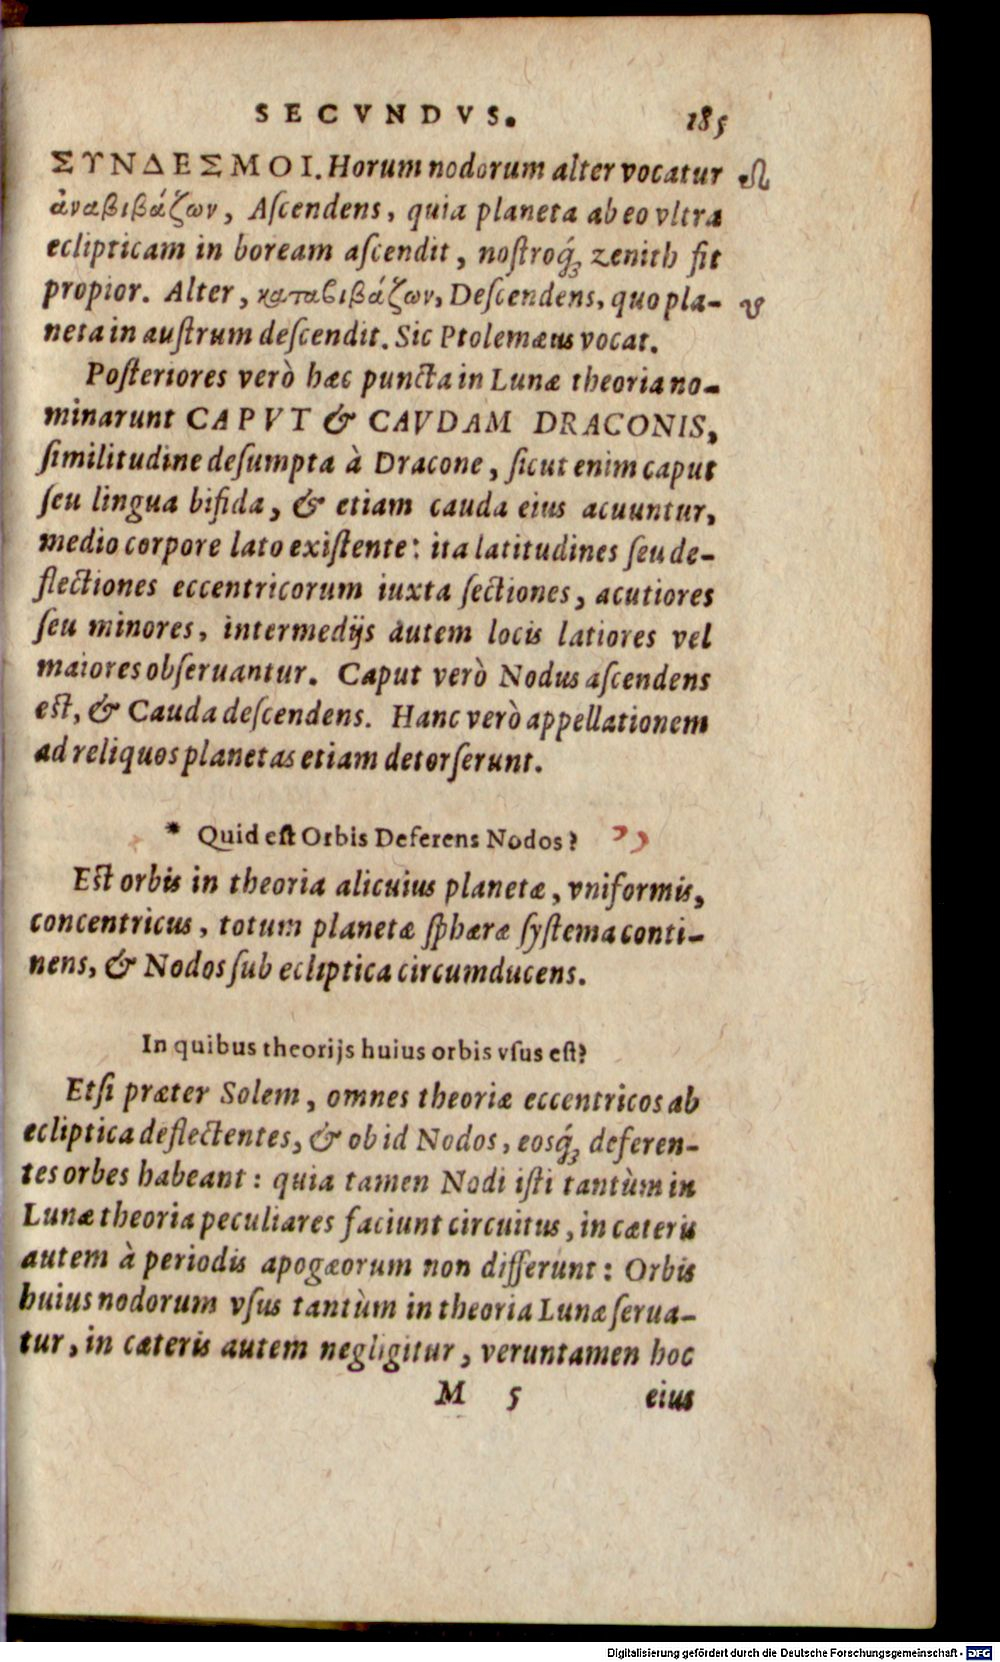 SECVNDVS. 185
ΣΥΝΔΕΣΜΟΙ. Horum nodorum alter vocatur ☊
ἀναβιβάζων, Aſcendens, quia planeta ab eo vltra
eclipticam in boream aſcendit, noſtroq́ꝫ zenith fit
propior. Alter, καταβιβάζων, Deſcendens, quo pla- ☋
neta in auſtrum deſcendit. Sic Ptolemæus vocat.
Poſteriores verò hæc puncta in Lunæ theoria no-
minarunt CAPVT & CAVDAM DRACONIS,
ſimilitudine deſumpta à Dracone, ſicut enim caput
ſeu lingua bifida, & etiam cauda eius acuuntur,
medio corpore lato exiſtente: ita latitudines ſeu de-
flectiones eccentricorum iuxta ſectiones, acutiores
ſeu minores, intermedijs autem locis latiores vel
maiores obſeruantur. Caput verò Nodus aſcendens
eſt, & Cauda deſcendens. Hanc verò appellationem
ad reliquos planetas etiam detorſerunt.
* Quid eſt Orbis Deferens Nodos?
Eſt orbis in theoria alicuius planetæ, vniformis,
concentricus, totum planetæ ſphæræ ſyſtema conti-
nens, & Nodos ſub ecliptica circumducens.
In quibus theorijs huius orbis vſus eſt?
Etſi præter Solem, omnes theoriæ eccentricos ab
ecliptica deflectentes, & ob id Nodos, eosq́ꝫ deferen-
tes orbes habeant: quia tamen Nodi iſti tantùm in
Lunæ theoria peculiares faciunt circuitus, in cæteris
autem à periodis apogæorum non differunt: Orbis
huius nodorum vſus tantùm in theoria Lunæ ſerua-
tur, in cæteris autem negligitur, veruntamen hoc
M 5 eius
Digitalisierung gefördert durch die Deutsche Forschungsgemeinschaft - DFG